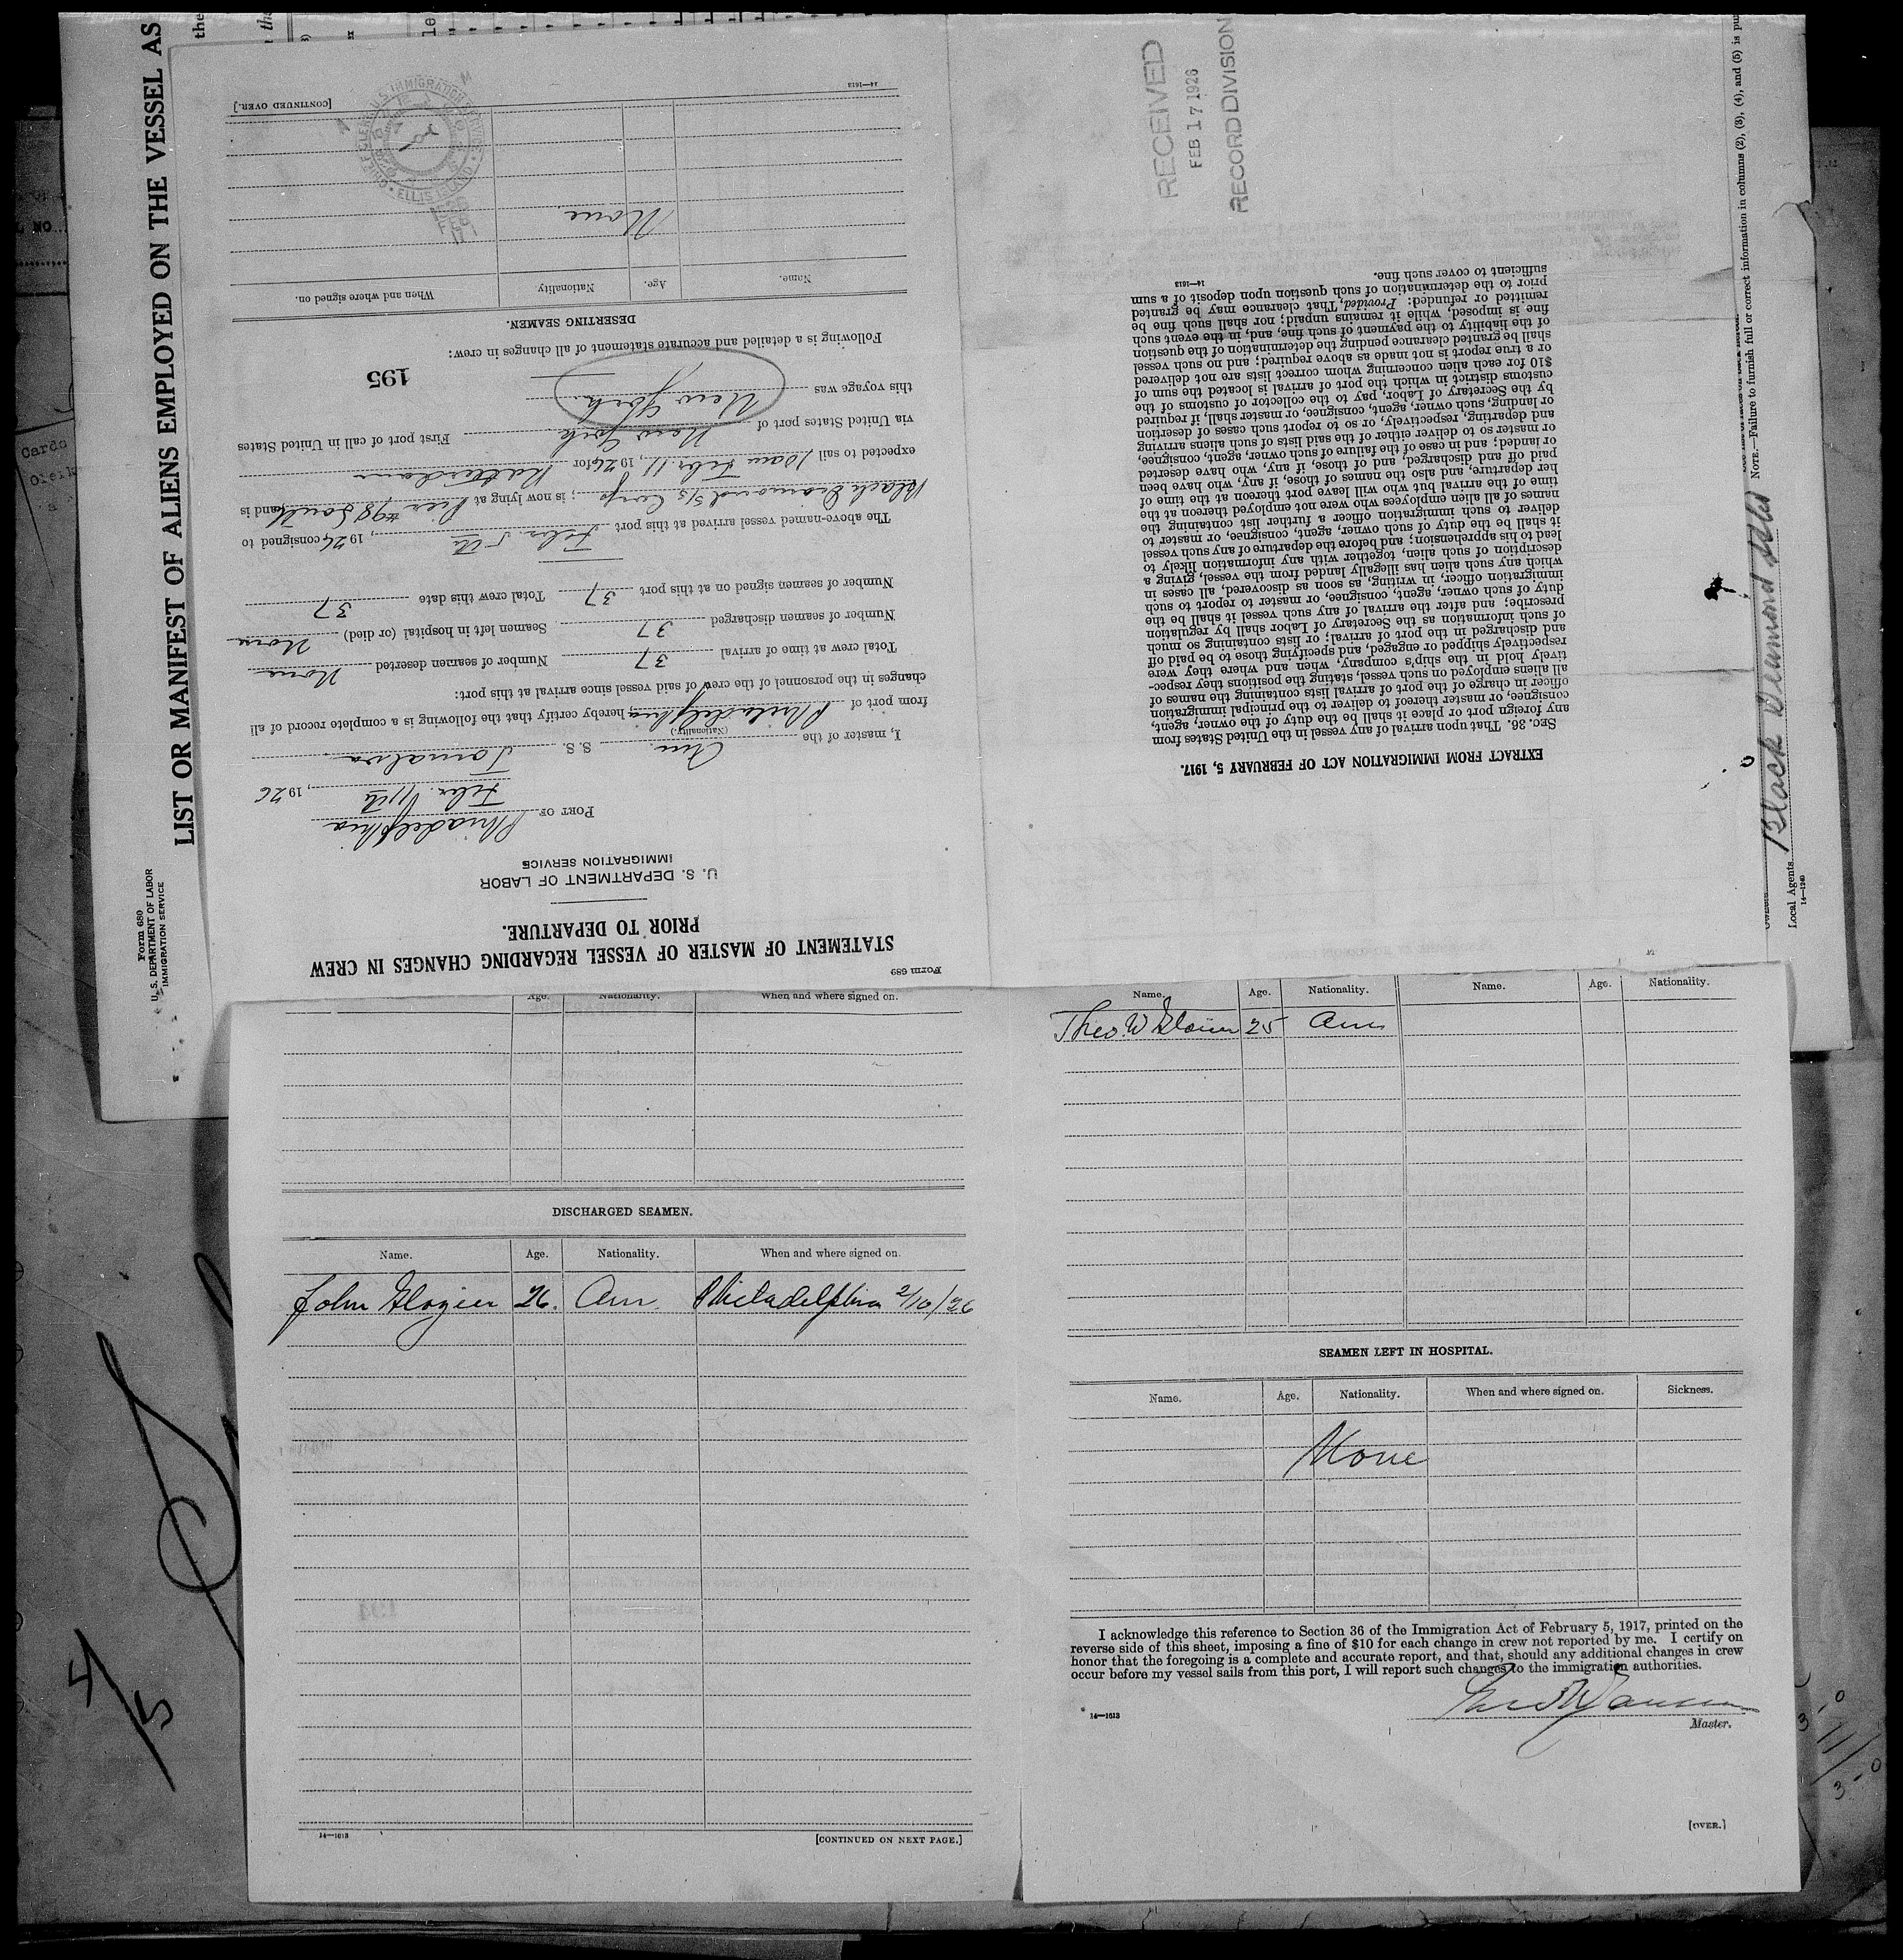 Form 680
U. S. DEPARTMENT OF LABOR
IMMIGRATION SERVICE
LIST OR MANIFEST OF ALIENS EMPLOYED ON THE VESSEL AS
Form 689
STATEMENT OF MASTER OF VESSEL REGARDING CHANGES IN CREW
PRIOR TO DEPARTURE.
U. S. DEPARTMENT OF LABOR
IMMIGRATION SERVICE
PORT OF Philadelphia
Febr. 11th, 1926
I, master of the Am. S. S. Tomalva
(Nationality.)
from port of Philadelphia, hereby certify that the following is a complete record of all
changes in the personnel of the crew of said vessel since arrival at this port:
Total crew at time of arrival 37 Number of seamen deserted None
Number of seamen discharged 37 Seamen left in hospital (or died) None
Number of seamen signed on at this port 37 Total crew this date 37
The above-named vessel arrived at this port Febr 5th, 1926 consigned to
Black Diamond S/S Corp.; is now lying at Pier #98 South and is
expected to sail 10am Febr. 11, 1926 for Rotterdam
via United States port of New York First port of call in United States
this voyage was New York
195
Following is a detailed and accurate statement of all changes in crew:
DESERTING SEAMEN.
Name. Age. Nationality. When and where signed on.
None.
14—1613 [CONTINUED OVER.]
RECEIVED
FEB 17 1926
RECORD DIVISION
EXTRACT FROM IMMIGRATION ACT OF FEBRUARY 5, 1917.
SEC. 36. That upon arrival of any vessel in the United States from
any foreign port or place it shall be the duty of the owner, agent,
consignee, or master thereof to deliver to the principal immigration
officer in charge of the port of arrival lists containing the names of
all aliens employed on such vessel, stating the positions they respec-
tively hold in the ship's company, when and where they were
respectively shipped or engaged, and specifying those to be paid off
and discharged in the port of arrival; or lists containing so much
of such information as the Secretary of Labor shall by regulation
prescribe; and after the arrival of any such vessel it shall be the
duty of such owner, agent, consignee, or master to report to such
immigration officer, in writing, as soon as discovered, all cases in
which any such alien has illegally landed from the vessel, giving a
description of such alien, together with any information likely to
lead to his apprehension; and before the departure of any such vessel
it shall be the duty of such owner, agent, consignee, or master to
deliver to such immigration officer a further list containing the
names of all alien employees who were not employed thereon at the
time of the arrival but who will leave port thereon at the time of
her departure, and also the names of those, if any, who have been
paid off and discharged, and of those, if any, who have deserted
or landed; and in case of the failure of such owner, agent, consignee,
or master so to deliver either of the said lists of such aliens arriving
and departing, respectively, or so to report such cases of desertion
or landing, such owner, agent, consignee, or master shall, if required
by the Secretary of Labor, pay to the collector of customs of the
customs district in which the port of arrival is located the sum of
$10 for each alien concerning whom correct lists are not delivered
or a true report is not made as above required; and no such vessel
shall be granted clearance pending the determination of the question
of the liability to the payment of such fine, and, in the event such
fine is imposed, while it remains unpaid; nor shall such fine be
remitted or refunded: Provided, That clearance may be granted
prior to the determination of such question upon deposit of a sum
sufficient to cover such fine.
14—1613
NOTE.—Failure to furnish full or correct information in columns (2), (3), (4), and (5) is pu
Local Agents Black Diamond
14—1240
Age. Nationality. When and where signed on.
DISCHARGED SEAMEN.
Name. Age. Nationality. When and where signed on.
John Glozier 26. Am. Philadelphia 2/10/26
14—1613 [CONTINUED ON NEXT PAGE.]
Name. Age. Nationality. Name. Age. Nationality.
Theo. W 25 Am
SEAMEN LEFT IN HOSPITAL.
Name. Age. Nationality. When and where signed on. Sickness.
None
I acknowledge this reference to Section 36 of the Immigration Act of February 5, 1917, printed on the
reverse side of this sheet, imposing a fine of $10 for each change in crew not reported by me. I certify on
honor that the foregoing is a complete and accurate report, and that, should any additional changes in crew
occur before my vessel sails from this port, I will report such changes to the immigration authorities.
14—1613
Master.
[OVER.]
4/5